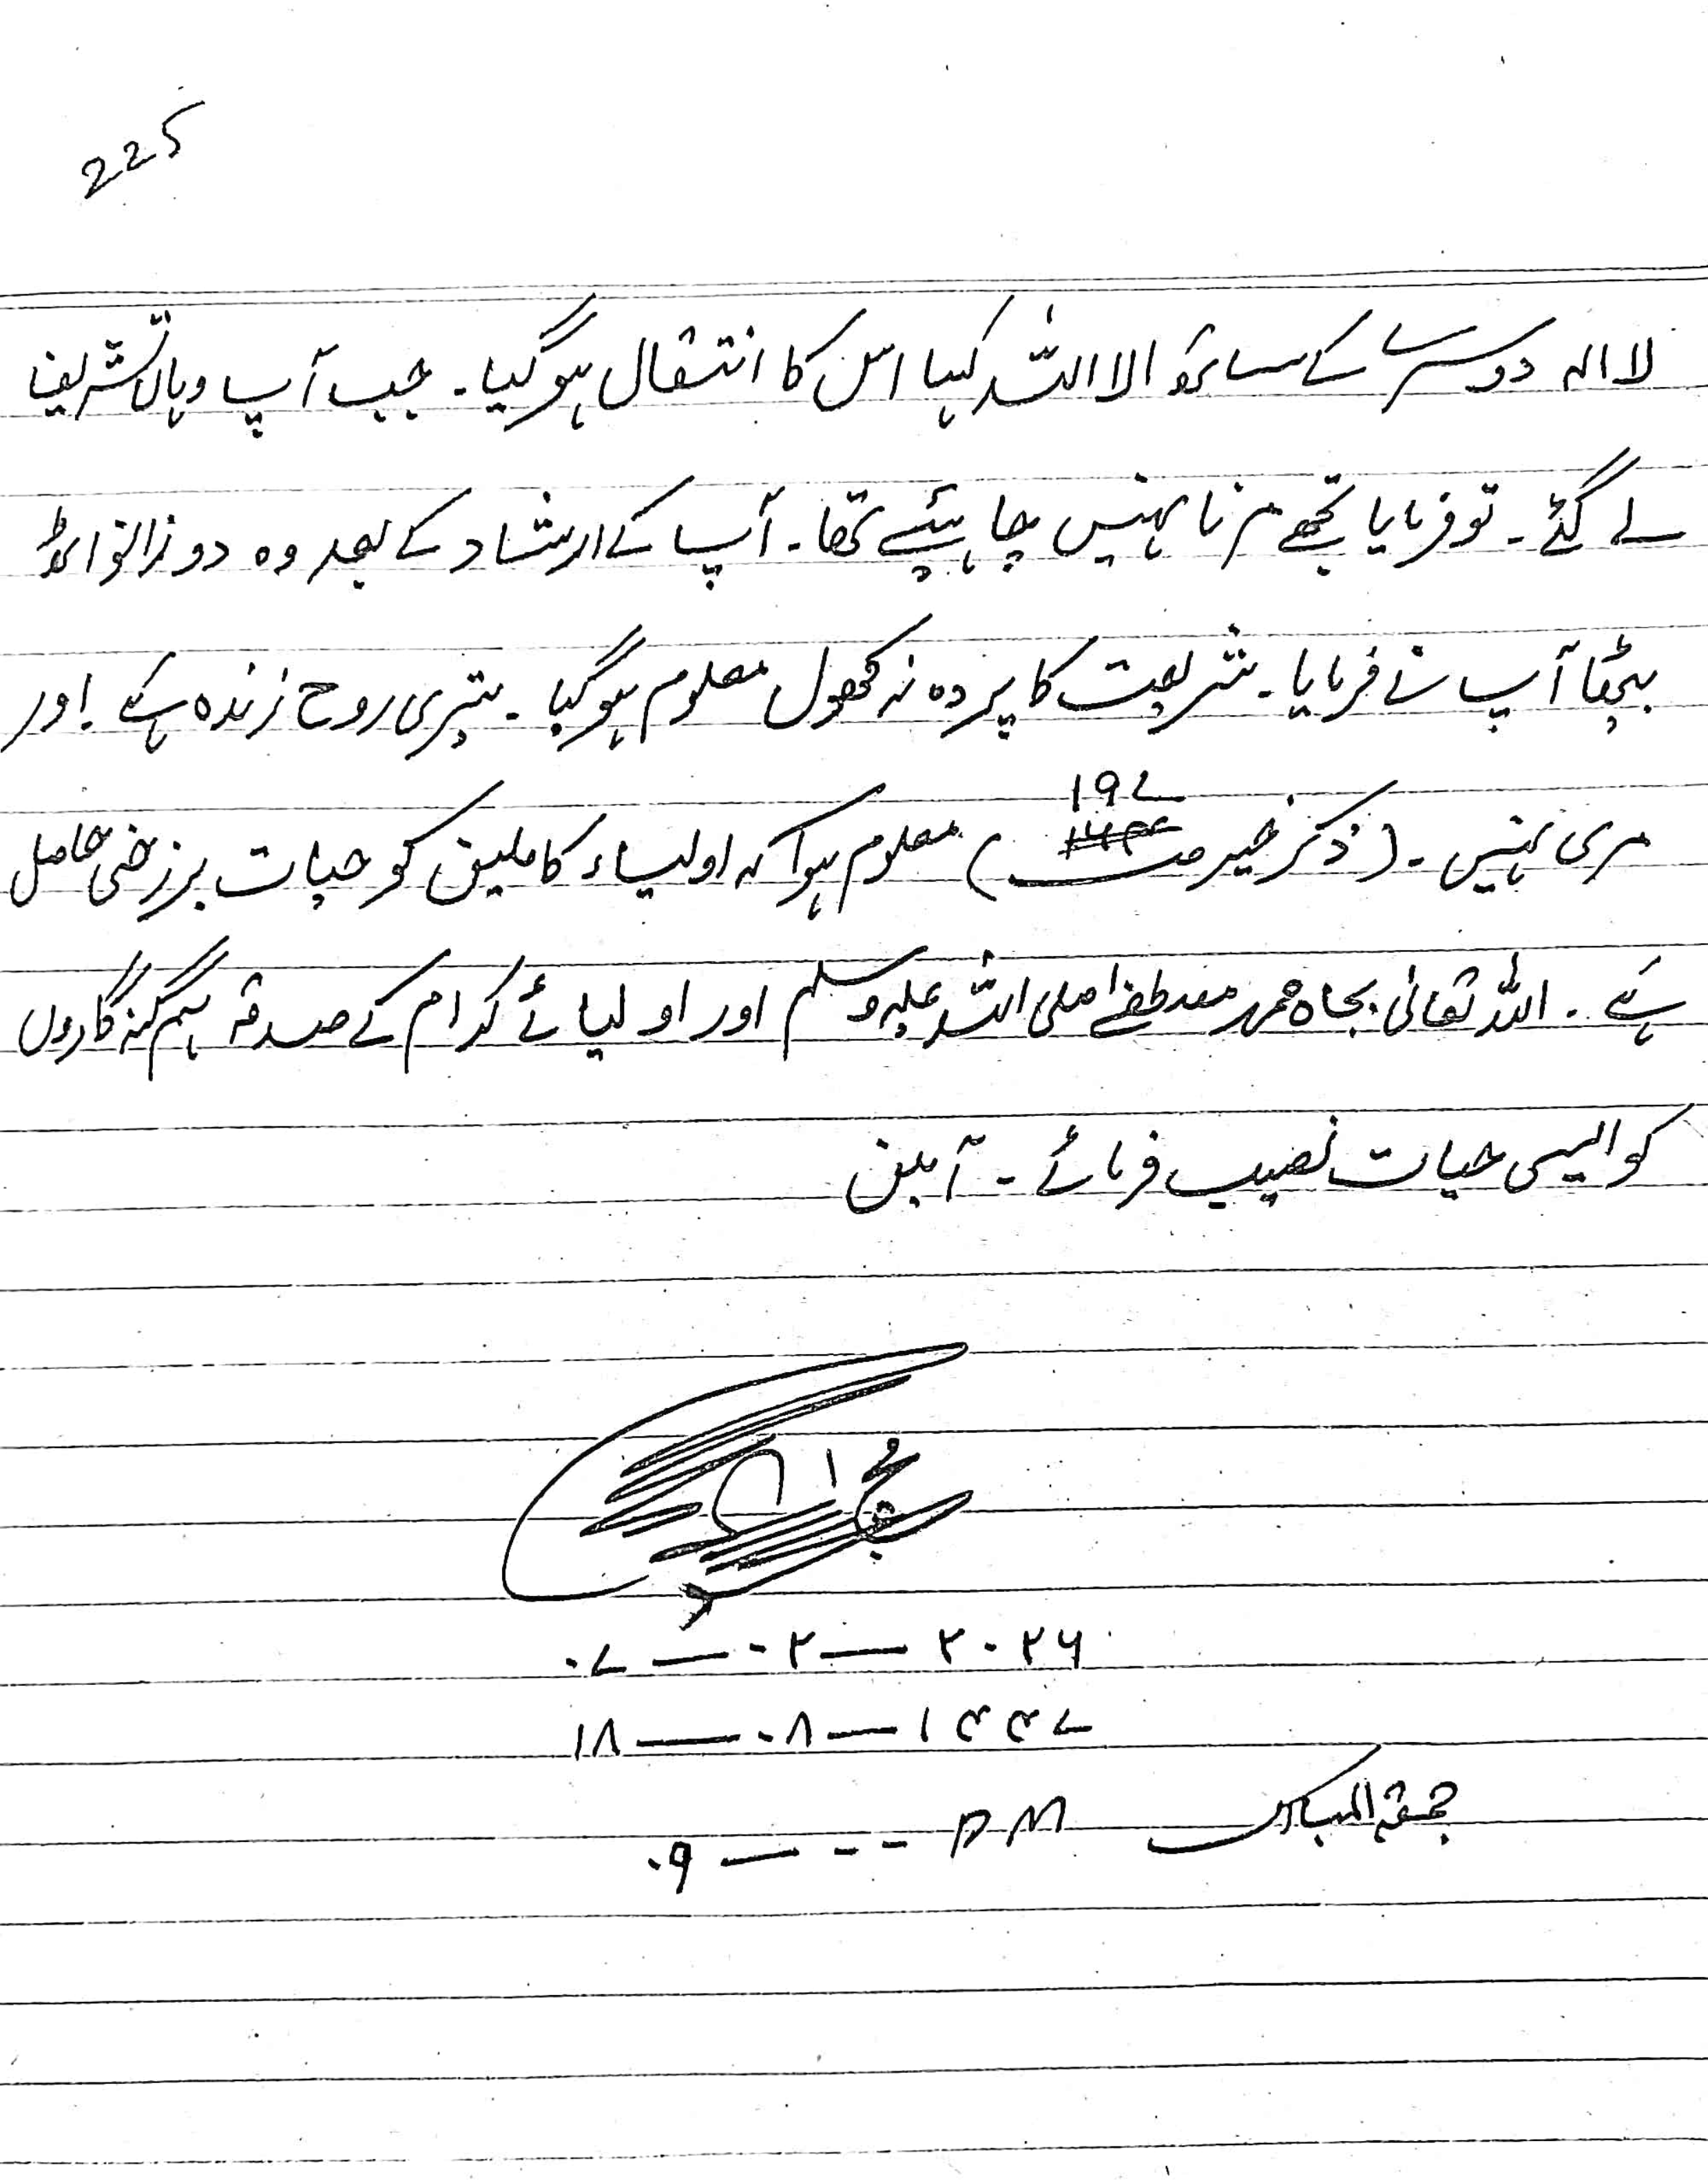 225
لا الہ دوسرے کے ساتھ الا اللہ کہا اس کا انتقال ہوگیا۔ جب آپ وہاں تشریف
لے گئے۔ تو فرمایا تجھے مرنا نہیں چاہئیے تھا۔ آپ کے ارشاد کے بعد وہ دو زانو اٹھ
بیٹھا آپ نے فرمایا۔ شریعت کا پردہ نہ کھول معلوم ہوگیا۔ تیری روح زندہ ہے۔ اور
مری نہیں۔ (ذکر خیر صـ ۱۹۷) معلوم ہوا کہ اولیاء کاملین کو حیات برزخی حاصل
ہے۔ اللہ تعالیٰ بجاہ محمد مصطفےٰ صلی اللہ علیہ وسلم اور اولیائے کرام کے صدقہ ہم گنہگاروں
کو ایسی حیات نصیب فرمائے۔ آمین
۰۷ — ۰۲ — ۲۰۲۶
۱۸ — ۰۸ — ۱۴۴۷
جمعۃ المبارک PM - - — ۰۹